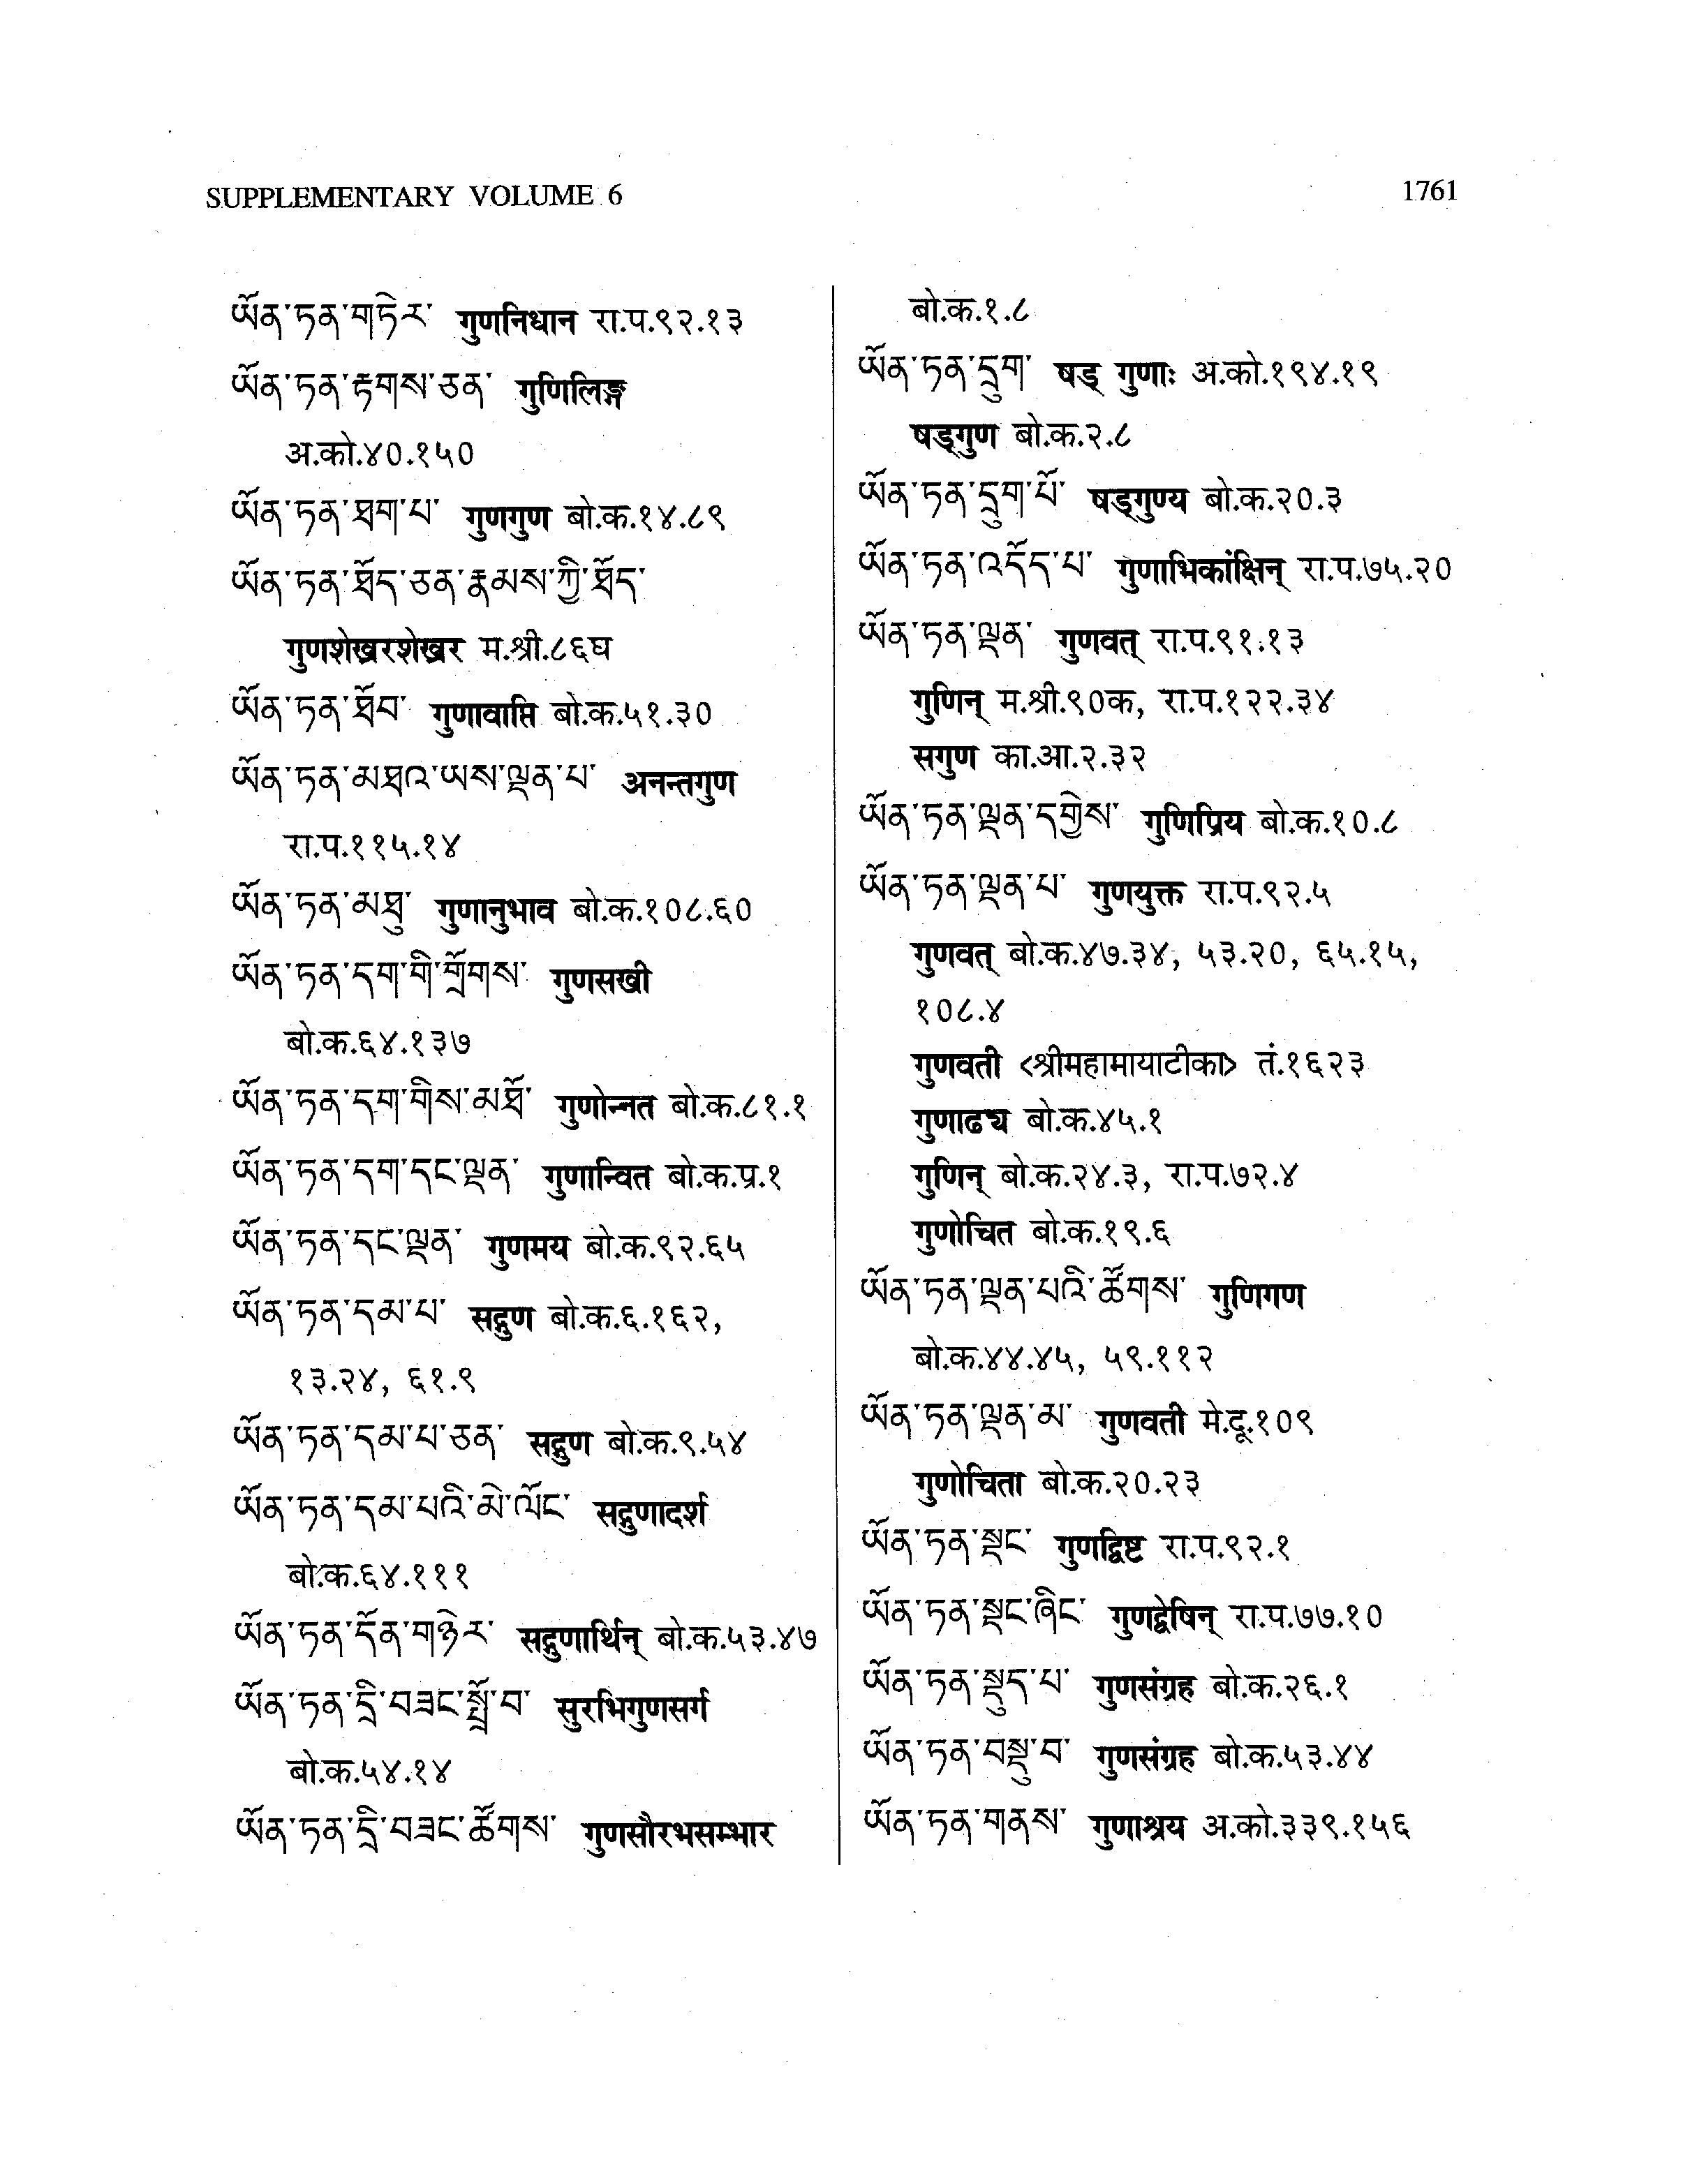 SUPPLEMENTARY VOLUME 6
1761
ཡོན་ཏན་གཏེར་ गुणनिधान रा.प.९२.१३
ཡོན་ཏན་རྟགས་ཅན་ गुणिलिङ्ग
अ.को.४०.१५०
ཡོན་ཏན་ཐག་པ་ गुणगुण बो.क.१४.८९
ཡོན་ཏན་ཐོད་ཅན་རྣམས་ཀྱི་ཐོད་
गुणशेखरशेखर म.श्री.८६घ
ཡོན་ཏན་ཐོབ་ गुणावाप्ति बो.क.५१.३०
ཡོན་ཏན་མཐའ་ཡས་ལྡན་པ་ अनन्तगुण
रा.प.११५.१४
ཡོན་ཏན་མཐུ་ गुणानुभाव बो.क.१०८.६०
ཡོན་ཏན་དག་གི་གྲོགས་ गुणसखी
बो.क.६४.१३७
ཡོན་ཏན་དག་གིས་མཐོ་ गुणोन्नत बो.क.८१.१
ཡོན་ཏན་དག་དང་ལྡན་ गुणान्वित बो.क.प्र.१
ཡོན་ཏན་དང་ལྡན་ गुणमय बो.क.९२.६५
ཡོན་ཏན་དམ་པ་ सद्गुण बो.क.६.१६२,
१३.२४, ६१.९
ཡོན་ཏན་དམ་པ་ཅན་ सद्गुण बो.क.९.५४
ཡོན་ཏན་དམ་པའི་མེ་ལོང་ सद्गुणादर्श
बो.क.६४.१११
ཡོན་ཏན་དོན་གཉེར་ सद्गुणार्थिन् बो.क.५३.४७
ཡོན་ཏན་དྲི་བཟང་སྤྲོ་བ་ सुरभिगुणसर्ग
बो.क.५४.१४
ཡོན་ཏན་དྲི་བཟང་ཚོགས་ गुणसौरभसम्भार
बो.क.१.८
ཡོན་ཏན་དྲུག་ षड् गुणाः अ.को.१९४.१९
षड्गुण बो.क.२.८
ཡོན་ཏན་དྲུག་པོ་ षड्गुण्य बो.क.२०.३
ཡོན་ཏན་འདོད་པ་ गुणाभिकांक्षिन् रा.प.७५.२०
ཡོན་ཏན་ལྡན་ गुणवत् रा.प.९१.१३
गुणिन् म.श्री.९०क, रा.प.१२२.३४
सगुण का.आ.२.३२
ཡོན་ཏན་ལྡན་དགྱེས་ गुणिप्रिय बो.क.१०.८
ཡོན་ཏན་ལྡན་པ་ गुणयुक्त रा.प.९२.५
गुणवत् बो.क.४७.३४, ५३.२०, ६५.१५,
१०८.४
गुणवती <श्रीमहामायाटीका> तं.१६२३
गुणाढ्य बो.क.४५.१
गुणिन् बो.क.२४.३, रा.प.७२.४
गुणोचित बो.क.१९.६
ཡོན་ཏན་ལྡན་པའི་ཚོགས་ गुणिगण
बो.क.४४.४५, ५९.११२
ཡོན་ཏན་ལྡན་མ་ गुणवती मे.दू.१०९
गुणोचिता बो.क.२०.२३
ཡོན་ཏན་སྡང་ गुणद्विष्ट रा.प.९२.१
ཡོན་ཏན་སྡང་ཞིང་ गुणद्वेषिन् रा.प.७७.१०
ཡོན་ཏན་སྡུད་པ་ गुणसंग्रह बो.क.२६.१
ཡོན་ཏན་བསྡུ་བ་ गुणसंग्रह बो.क.५३.४४
ཡོན་ཏན་གནས་ गुणाश्रय अ.को.३३९.१५६